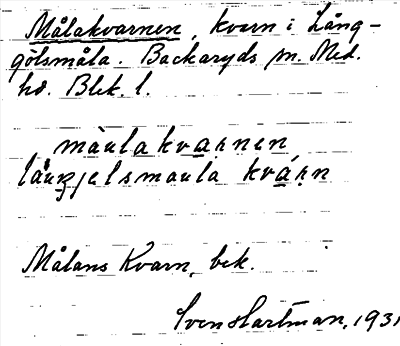 Målakvarnen, kvarn i Lång-
gölsmåla. Backaryds sn. Med.
hd. Blek. l.
màulakvaṛnen
låuŋjelsmaula kváṛn
Målans Kvarn, bek.
Sven Hartman, 1931